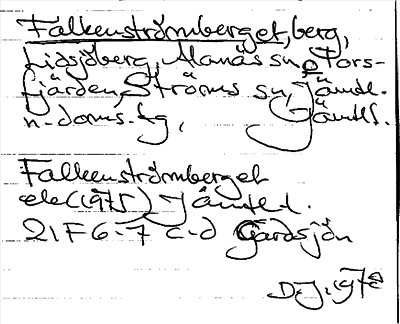 Falkenströmberget, berg,
Lidsjöberg, Alanäs sn, o Fors-
fjärden, Ströms sn, Jämtl.
n. doms. tg, Jämtl.
Falkenströmberget
ek (1975) Jämtl.
21 F 6-7 c-d Gärdsjön
D.J. 1978